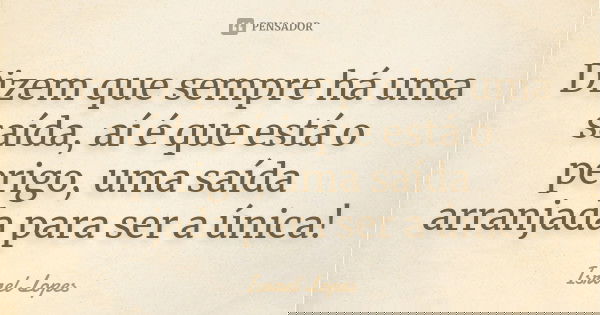 PENSADOR
Dizem que sempre há uma
saída, aí é que está o
perigo, uma saída
arranjada para ser a única!
Israel Lopes